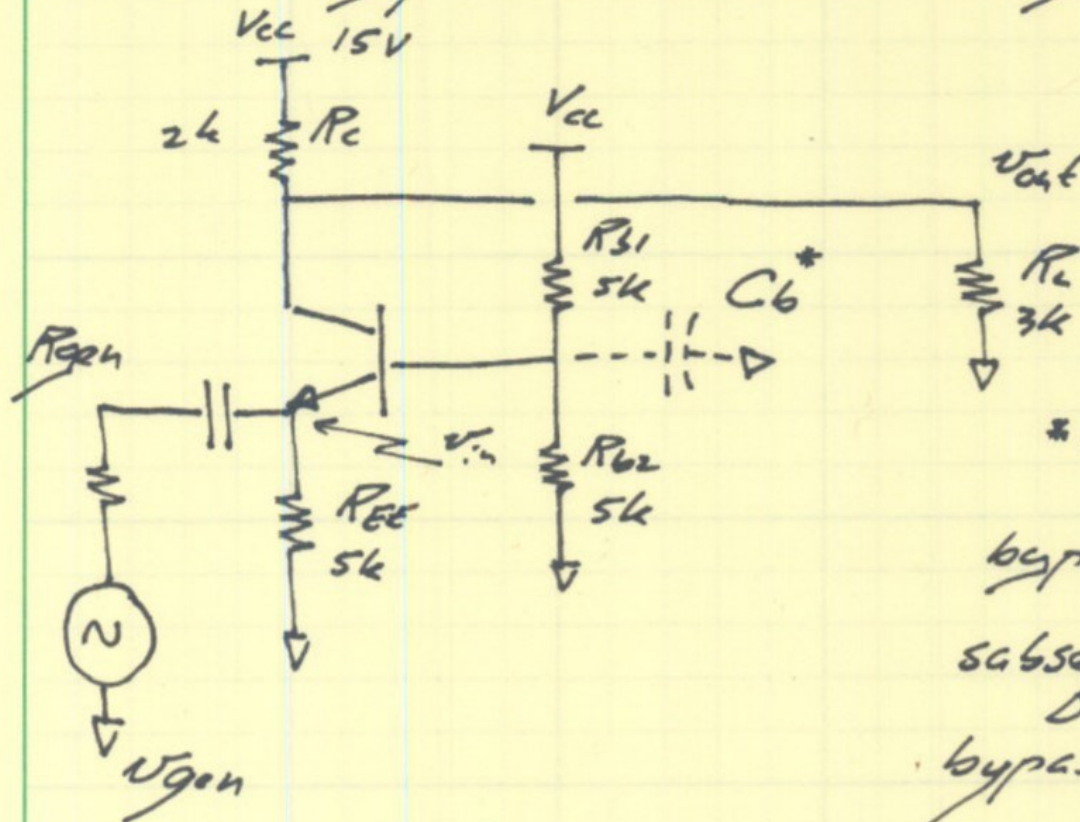 Vcc 15V
2k Rc
Vcc
vout
Rb1
5k
Cb*
RL
3k
Rgen
*
vin
Rb2
5k
REE
5k
byp
bypas
vgen